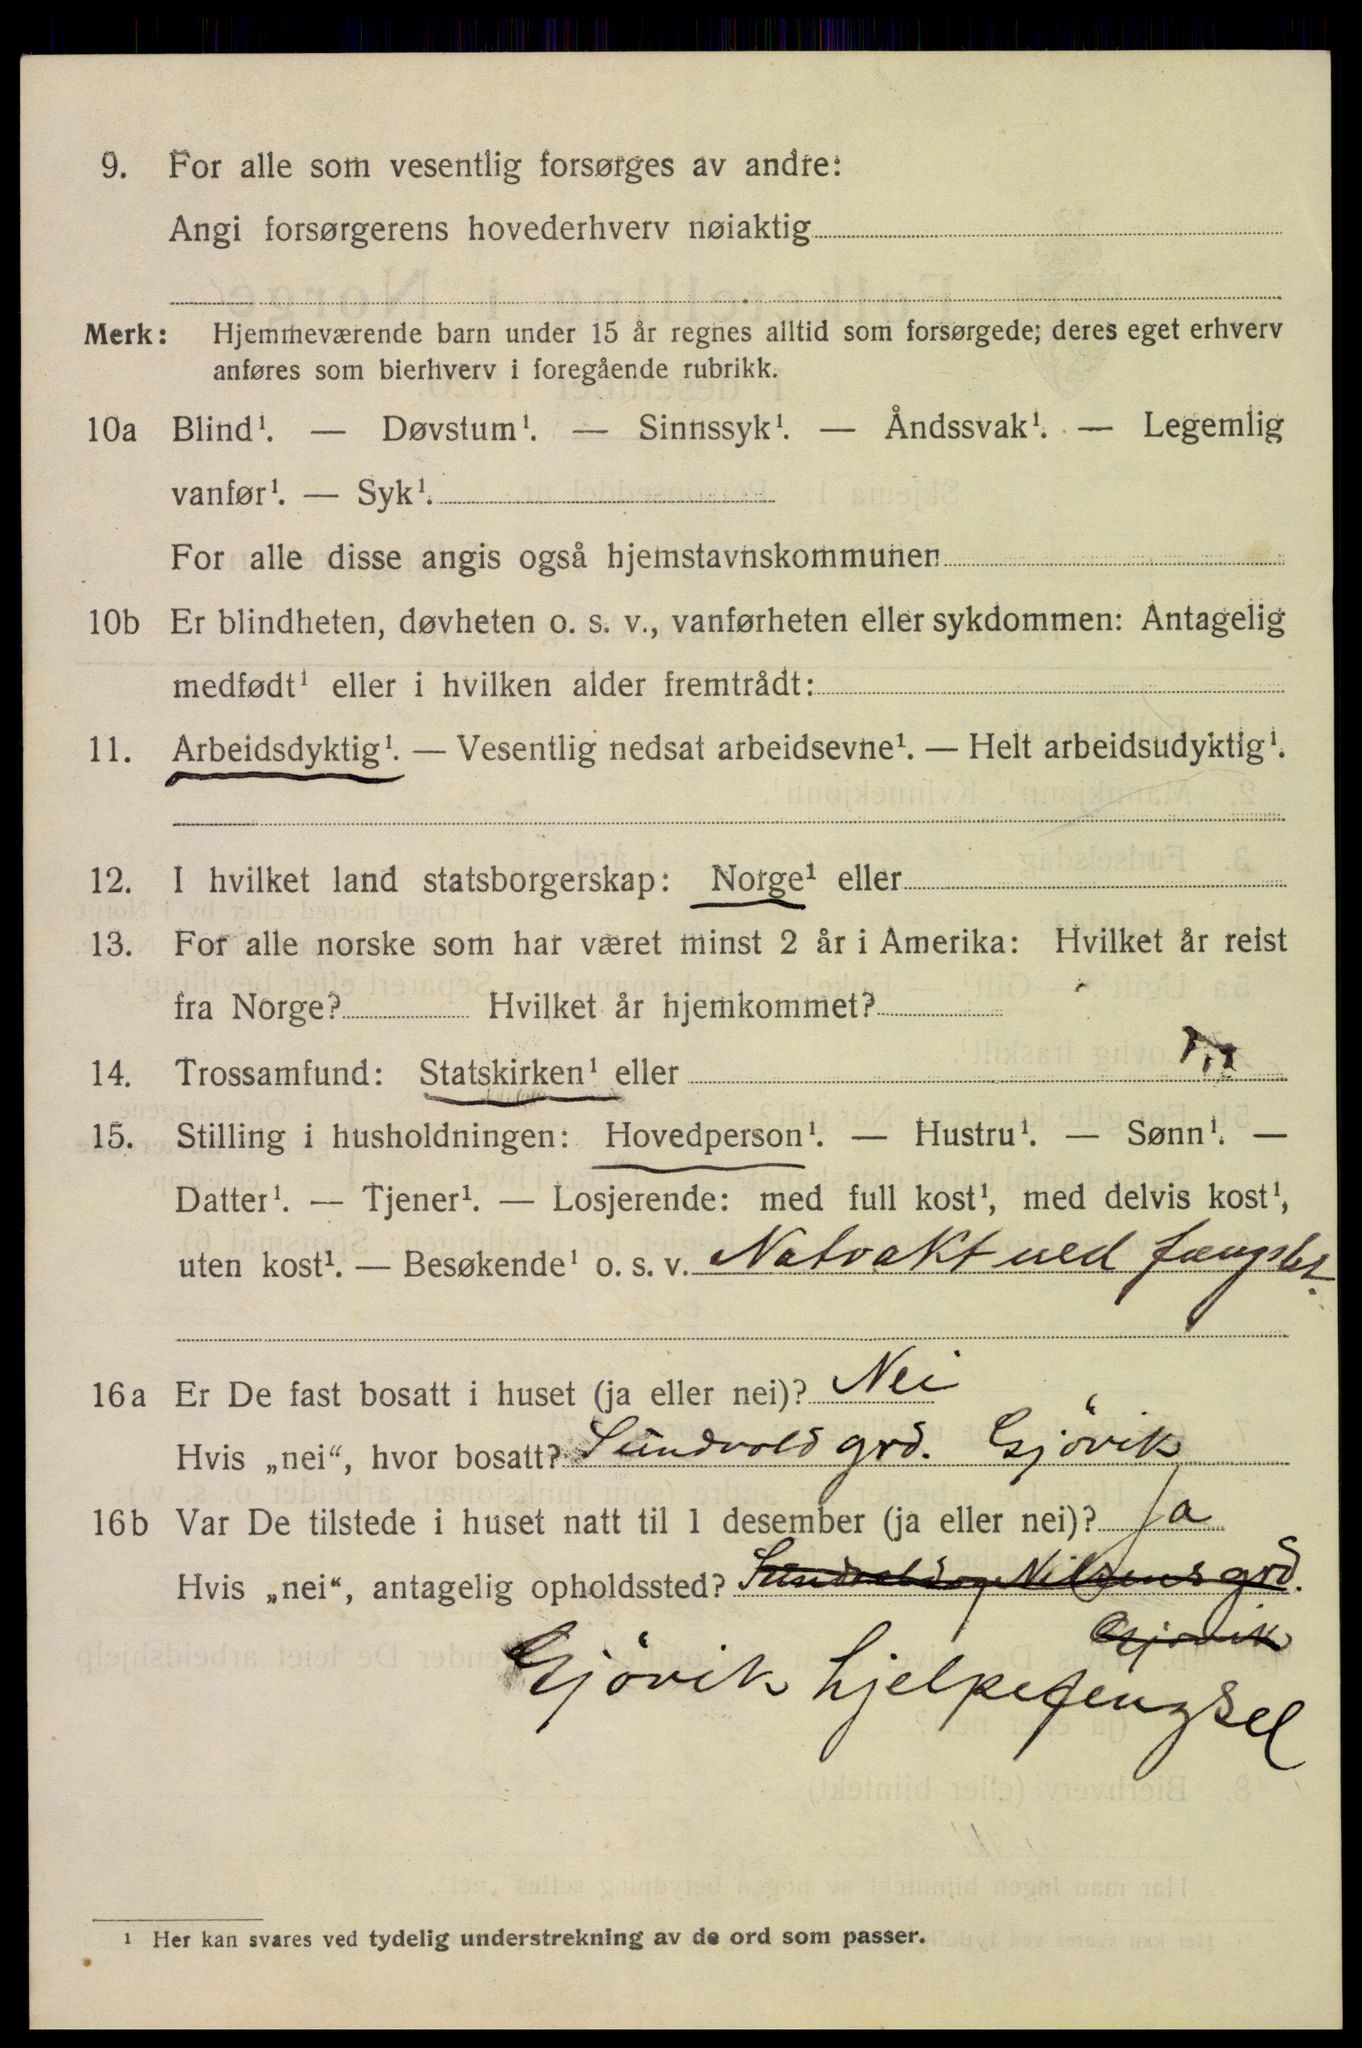 9. For alle som vesentlig forsørges av andre:
Angi forsørgerens hovederhverv nøiaktig
Merk: Hjemmeværende barn under 15 år regnes alltid som forsørgede; deres eget erhverv
anføres som bierhverv i foregående rubrikk.
10a Blind¹. — Døvstum¹. — Sinnssyk¹. — Åndssvak¹. — Legemlig
vanfør¹. — Syk¹.
For alle disse angis også hjemstavnskommunen
10b Er blindheten, døvheten o. s. v., vanførheten eller sykdommen: Antagelig
medfødt¹ eller i hvilken alder fremtrådt:
11. Arbeidsdyktig¹. — Vesentlig nedsat arbeidsevne¹. — Helt arbeidsudyktig¹.
12. I hvilket land statsborgerskap: Norge¹ eller
13. For alle norske som har været minst 2 år i Amerika: Hvilket år reist
fra Norge? Hvilket år hjemkommet?
14. Trossamfund: Statskirken¹ eller
15. Stilling i husholdningen: Hovedperson¹. — Hustru¹. — Sønn¹. —
Datter¹. — Tjener¹. — Losjerende: med full kost¹, med delvis kost¹,
uten kost¹. — Besøkende¹ o. s. v. Natvakt ved fængslet.
16a Er De fast bosatt i huset (ja eller nei)? Nei
Hvis „nei“, hvor bosatt? Sundvold grd. Gjövik
16b Var De tilstede i huset natt til 1 desember (ja eller nei)? Ja
Hvis „nei“, antagelig opholdssted? Sundvold og Nilsens grd.
Gjövik
Gjövik hjelpefengsel
¹ Her kan svares ved tydelig understrekning av de ord som passer.